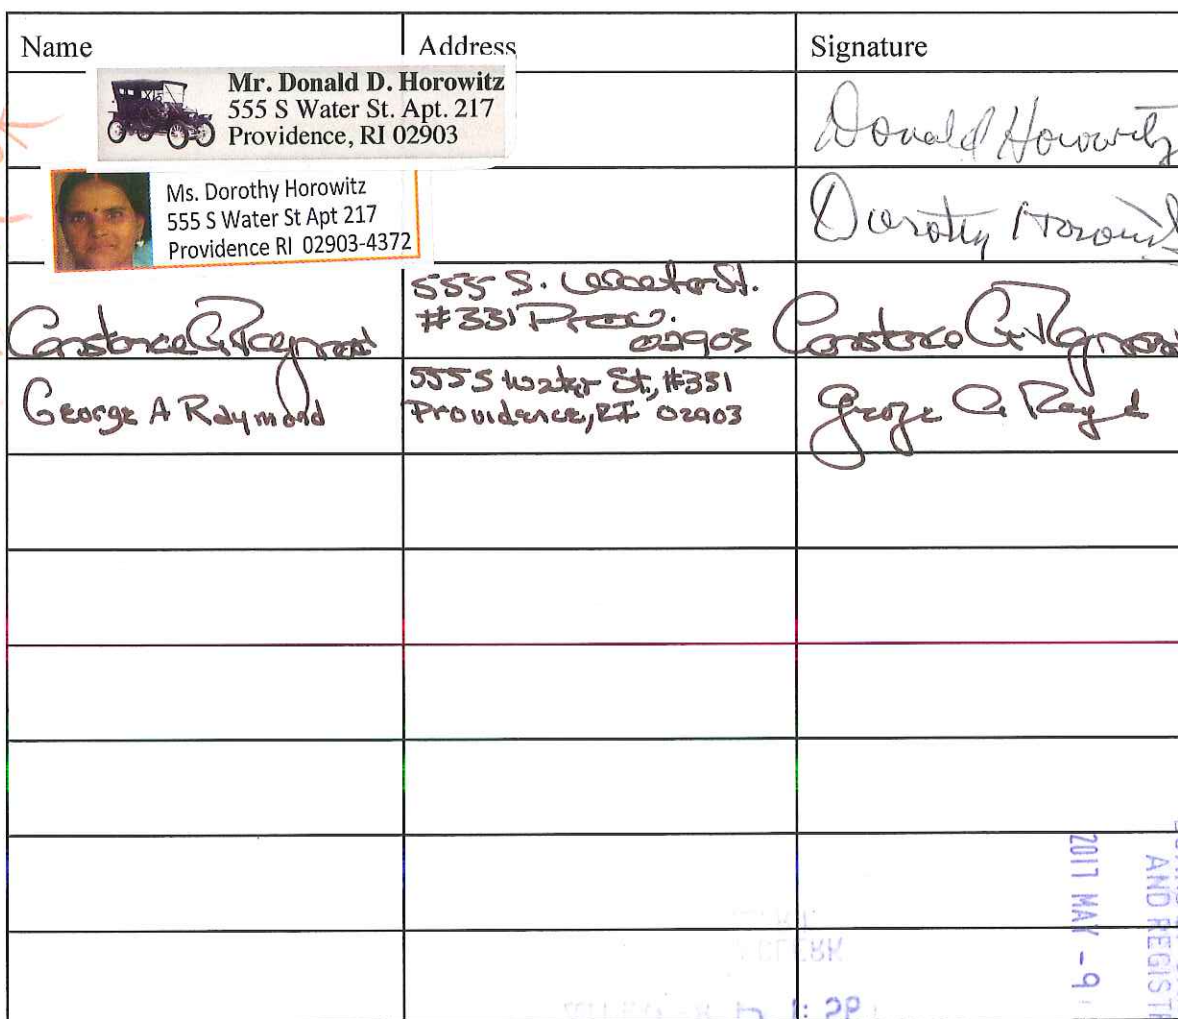 Name Address Signature
Mr. Donald D. Horowitz
555 S Water St. Apt. 217
Providence, RI 02903
Donald Horowitz
Ms. Dorothy Horowitz
555 S Water St Apt 217
Providence RI 02903-4372
Dorothy Horowitz
Constance G Raymond
555 S. Water St.
#331 Prov.
02903
Constance G Raymond
George A Raymond
555 S Water St, #331
Providence, RI 02903
George A Raymond
2017 MAY - 9
AND REGISTR
CLERK